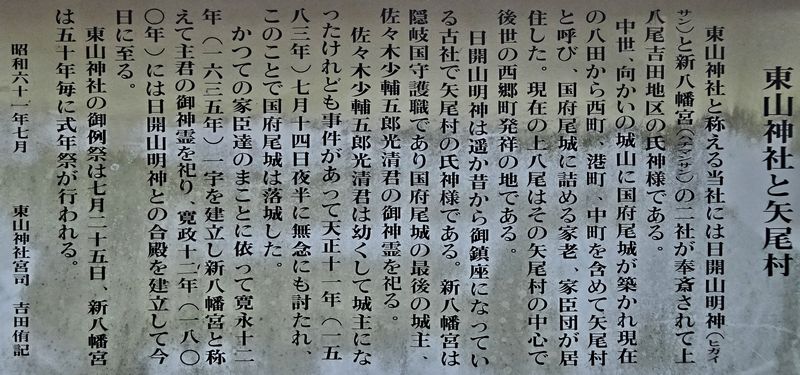 東山神社と矢尾村
東山神社と称える当社には日開山明神（ヒガイ
サン）と新八幡宮（イマハチマンサン）の二社が奉斎されて上
八尾吉田地区の氏神様である。
中世、向かいの城山に国府尾城が築かれ現在
の八田から西町、港町、中町を含めて矢尾村
と呼び、国府尾城に詰める家老、家臣団が居
住した。現在の上八尾はその矢尾村の中心で
後世の西郷町発祥の地である。
日開山明神は遥か昔から御鎮座になってい
る古社で矢尾村の氏神様である。新八幡宮は
隠岐国守護職であり国府尾城の最後の城主、
佐々木少輔五郎光清君の御神霊を祀る。
佐々木少輔五郎光清君は幼くして城主にな
ったけれども事件があって天正十一年（一五
八三年）七月十四日夜半に無念にも討たれ、
このことで国府尾城は落城した。
かつての家臣達のまことに依って寛永十二
年（一六三五年）一宇を建立し新八幡宮と称
えて主君の御神霊を祀り、寛政十二年（一八〇
〇年）には日開山明神との合殿を建立して今
日に至る。
東山神社の御例祭は七月二十五日、新八幡宮
は五十年毎に式年祭が行われる。
昭和六十一年七月　　東山神社宮司　吉田侑記